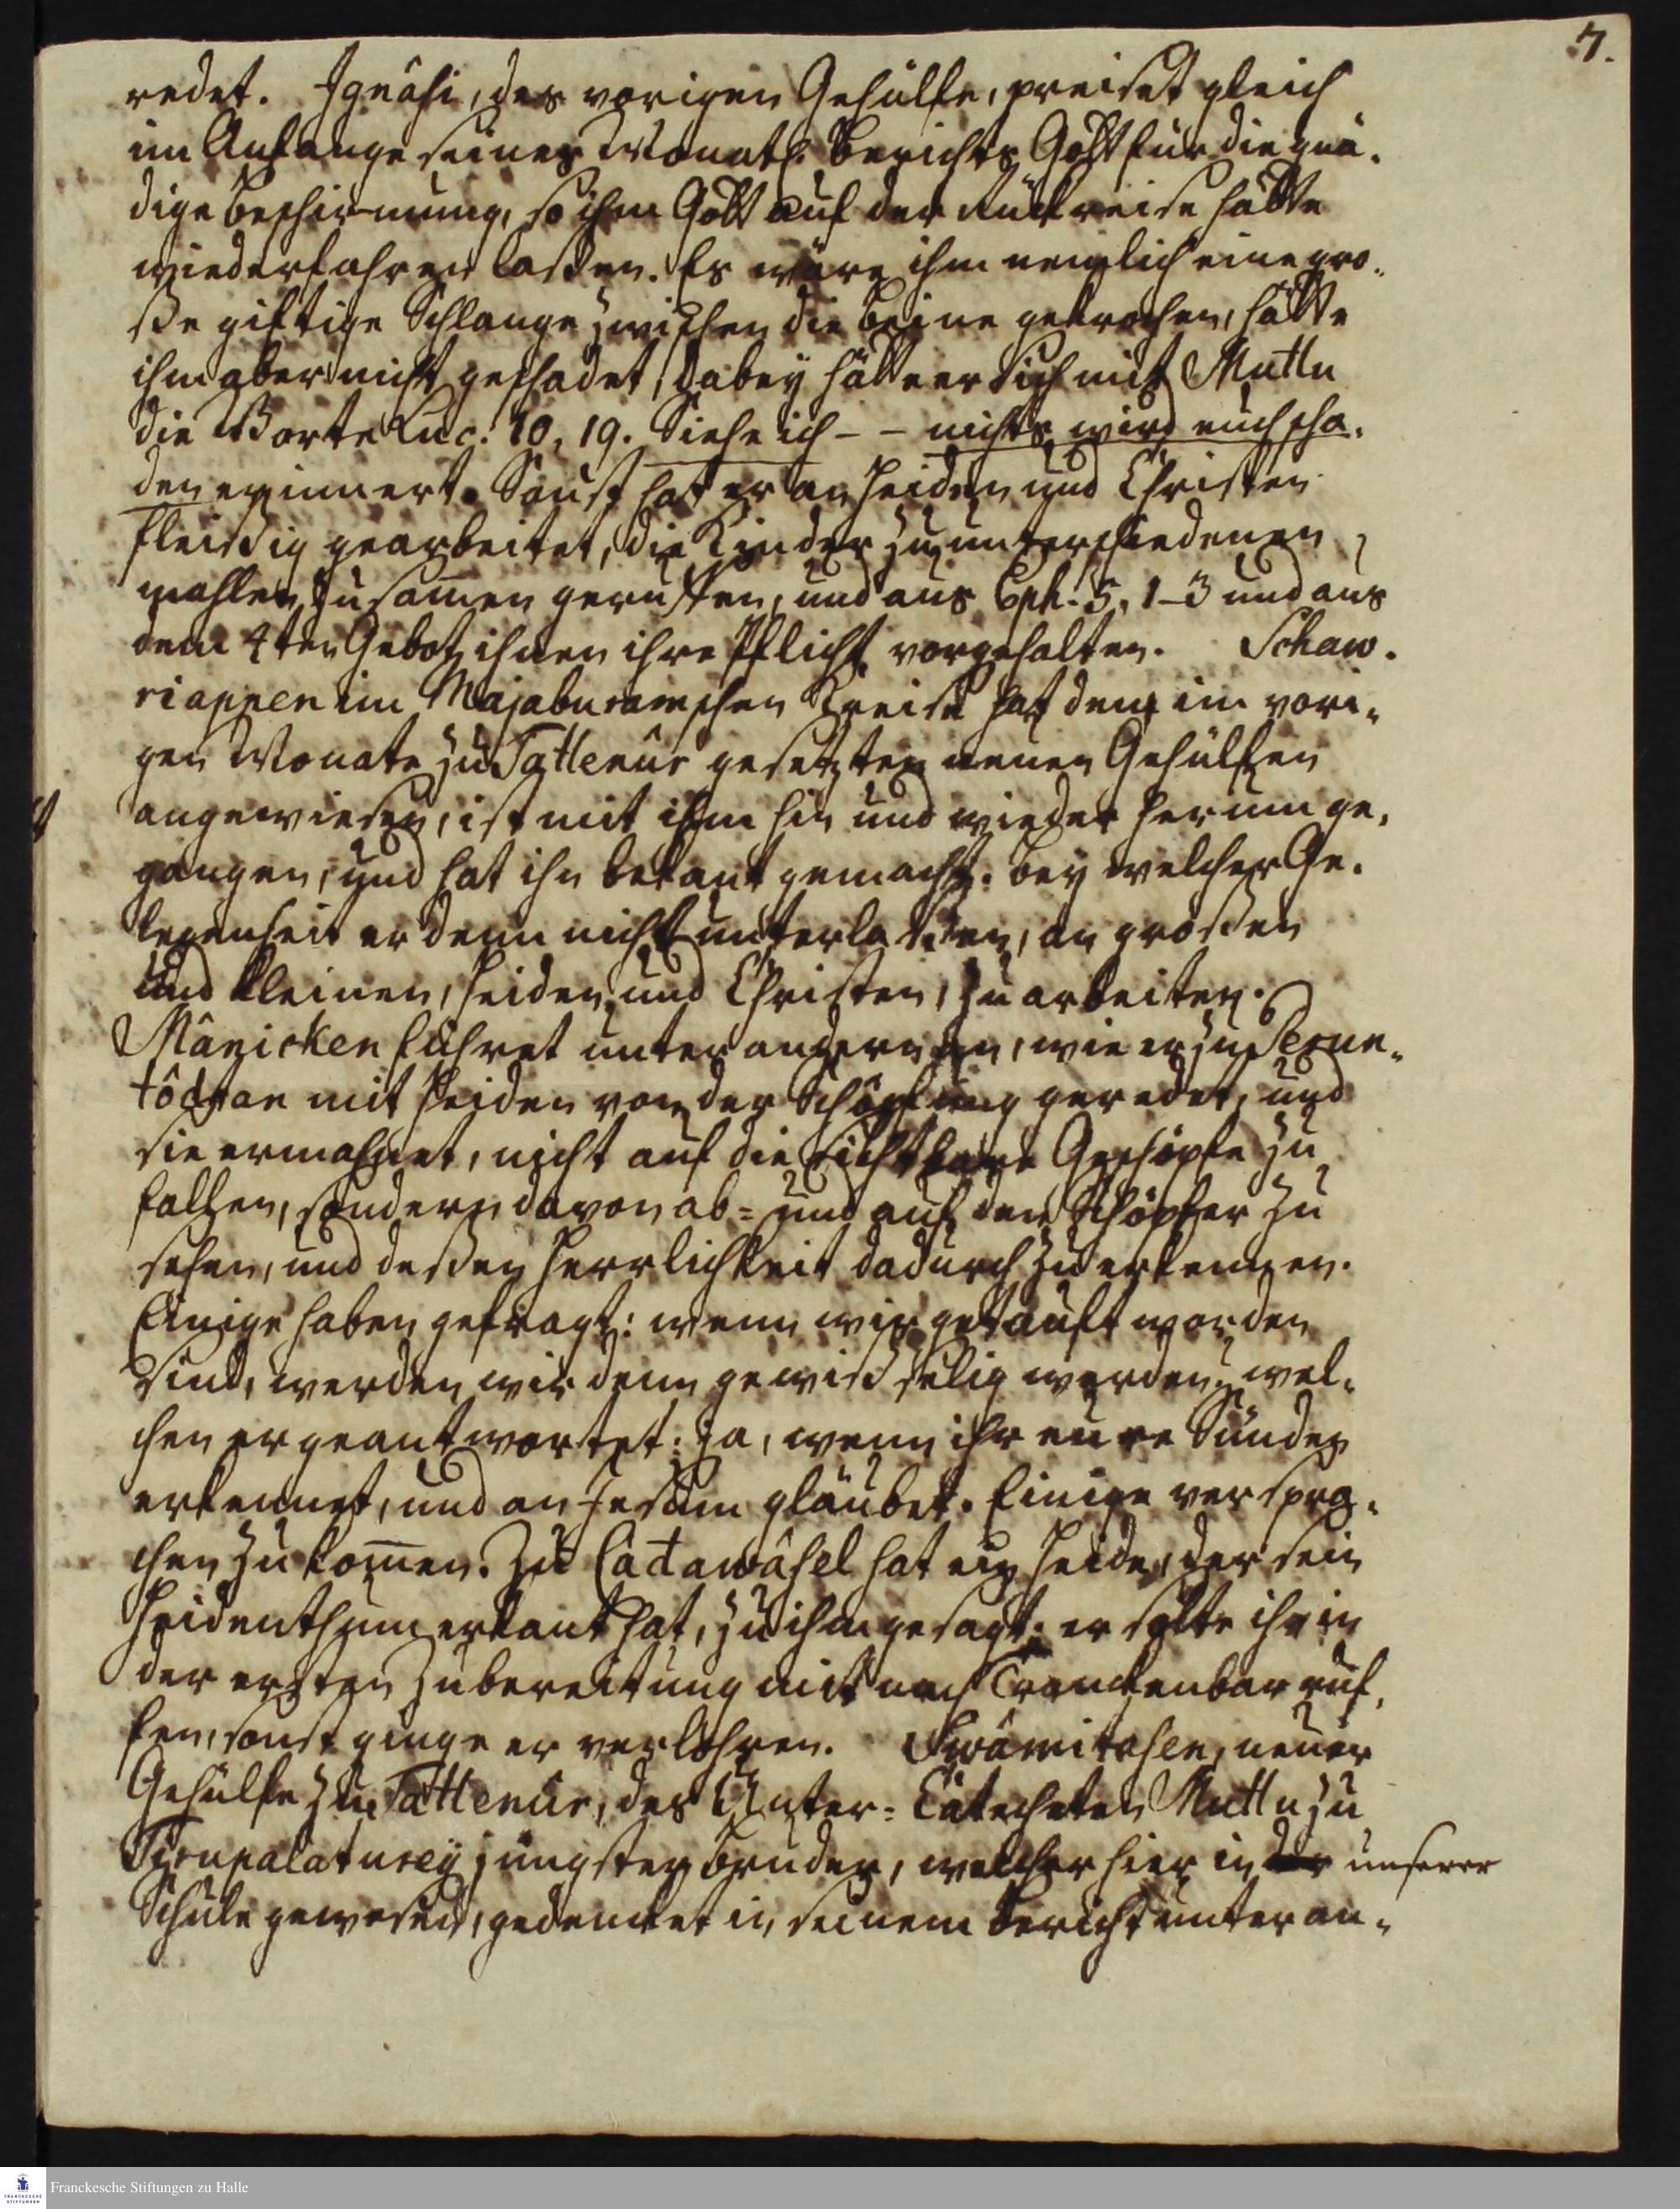 7.
redet. Ignâsi, des vorigen Gehülfe, preiset gleich
im Anfange seines Monatl. Berichts Gott für die gnä-
dige Beschirmung, so ihm Gott auf der Rückreise hätte
wiederfahren laßen. Es wäre ihm nemlich eine gro-
ße giftige Schlange zwischen die Beine gekrochen, hätte
ihm aber nicht geschadet, dabey hätte er sich mit Muttu
die Worte Luc. 10, 19. Siehe ich - - nichts wird euch scha-
den erinnert. Sonst hat er an Heiden und Christen
fleißig gearbeitet, die Kinder zu unterschiedenen
mahlen zusam̄en geruffen, und aus Eph. 5, 1-3 und aus
dem 4ten Gebot ihnen ihre Pflicht vorgehalten. Schaw-
riappen im Majaburamschen Kreise hat den im vori-
gen Monate zu Tattenûr gesetzten neuen Gehülfen
angewiesen, ist mit ihm hin und wieder herum ge-
gangen, und hat ihn bekant gemacht: bey welcher Ge-
legenheit er denn nicht unterlaßen, an großen
und kleinen, Heiden und Christen, zu arbeiten.
Mânicken führet unter andern an, wie er zu Perun-
tôdtan mit Heiden von der Schöpfung geredet, und
sie ermahnet, nicht auf die sichtbare Geschöpfe zu
fallen, sondern davon ab- und auf den Schöpfer zu
sehen, und deßen Herrlichkeit dadurch zu erkennen.
Einige haben gefragt: wenn wir getauft worden
sind, werden wir denn gewiß selig werden? wel-
chen er geantwortet: ja, wenn ihr eure Sünden
erkennet, und an Jesum gläubet. Einige verspra-
chen zu kom̄en. Zu Cadawâsel hat ein Heide, der sein
Heidenthum erkant hat, zu ihm gesagt: er solte ihn in
der ersten Zubereitung mit nach Tranckenbar ruf-
fen, sonst ginge er verlohren. Swâmitasen, neuer
Gehülfe zu Tattenûr, des Unter-Catecheten Muttu zu
Tirupalaturey jüngster Bruder, welcher hier in unserer
Schule gewesen, gedencket in seinem Bericht unter an-
Franckesche Stiftungen zu Halle